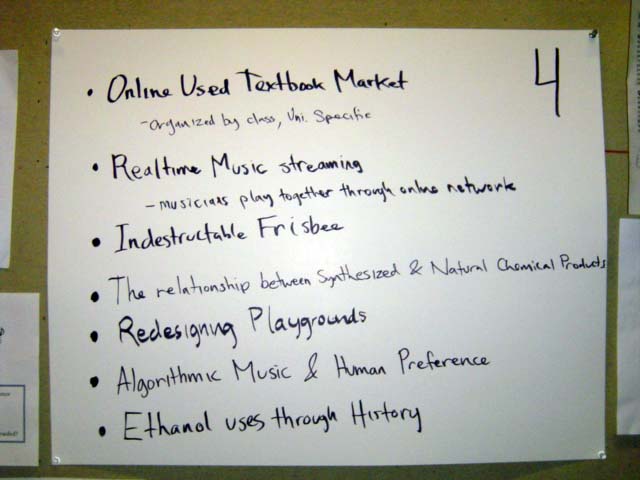 4
• Online Used Textbook Market
- Organized by class, Uni. Specific
• Realtime Music streaming
- musicians play together through online network
• Indestructable Frisbee
• The relationship between Synthesized & Natural Chemical Products
• Redesigning Playgrounds
• Algorithmic Music & Human Preference
• Ethanol uses through History